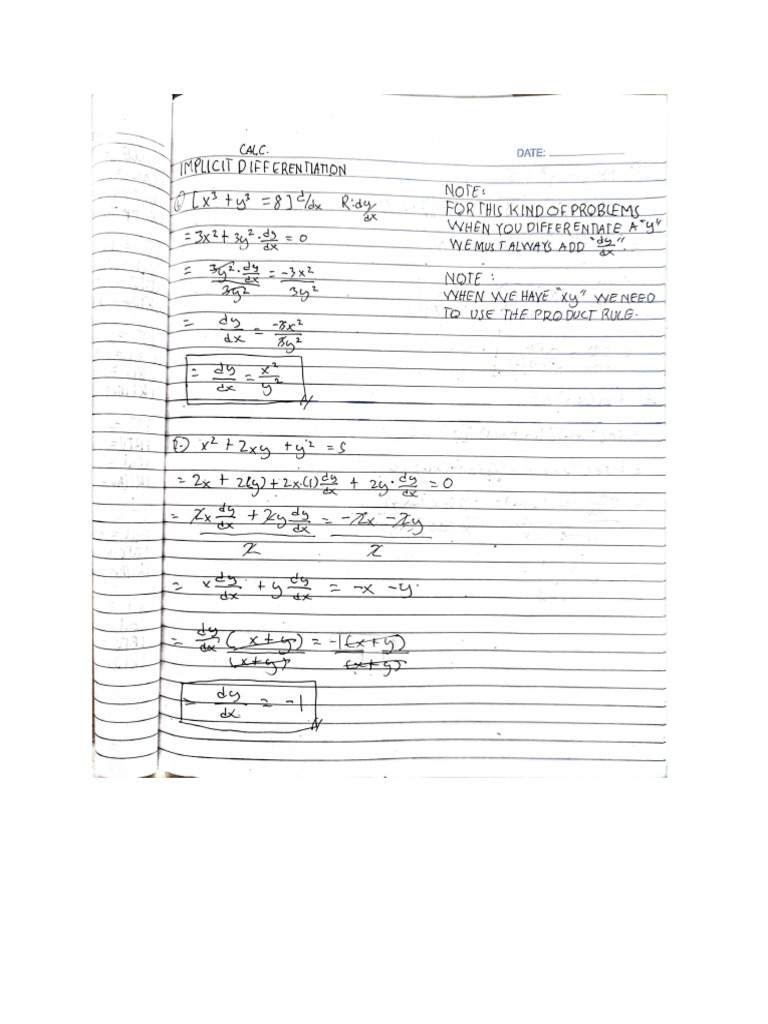 CALC.
DATE:
IMPLICIT DIFFERENTIATION
[x³ + y³ = 8] d/dx R: dy/dx
= 3x² + 3y² · dy/dx = 0
= 3y² · dy/dx / 3y² = -3x² / 3y²
= dy/dx = -3x² / 3y²
= dy/dx = x² / y²
NOTE:
FOR THIS KIND OF PROBLEMS
WHEN YOU DIFFERENTIATE A "y"
WE MUST ALWAYS ADD "dy/dx".
NOTE:
WHEN WE HAVE "xy" WE NEED
TO USE THE PRODUCT RULE.
x² + 2xy + y² = 5
= 2x + 2(y) + 2x·(1) dy/dx + 2y · dy/dx = 0
= 2x dy/dx + 2y dy/dx / 2 = -2x - 2y / 2
= x dy/dx + y dy/dx = -x - y
= dy/dx (x+y) / (x+y) = -1(x+y) / (x+y)
= dy/dx = -1